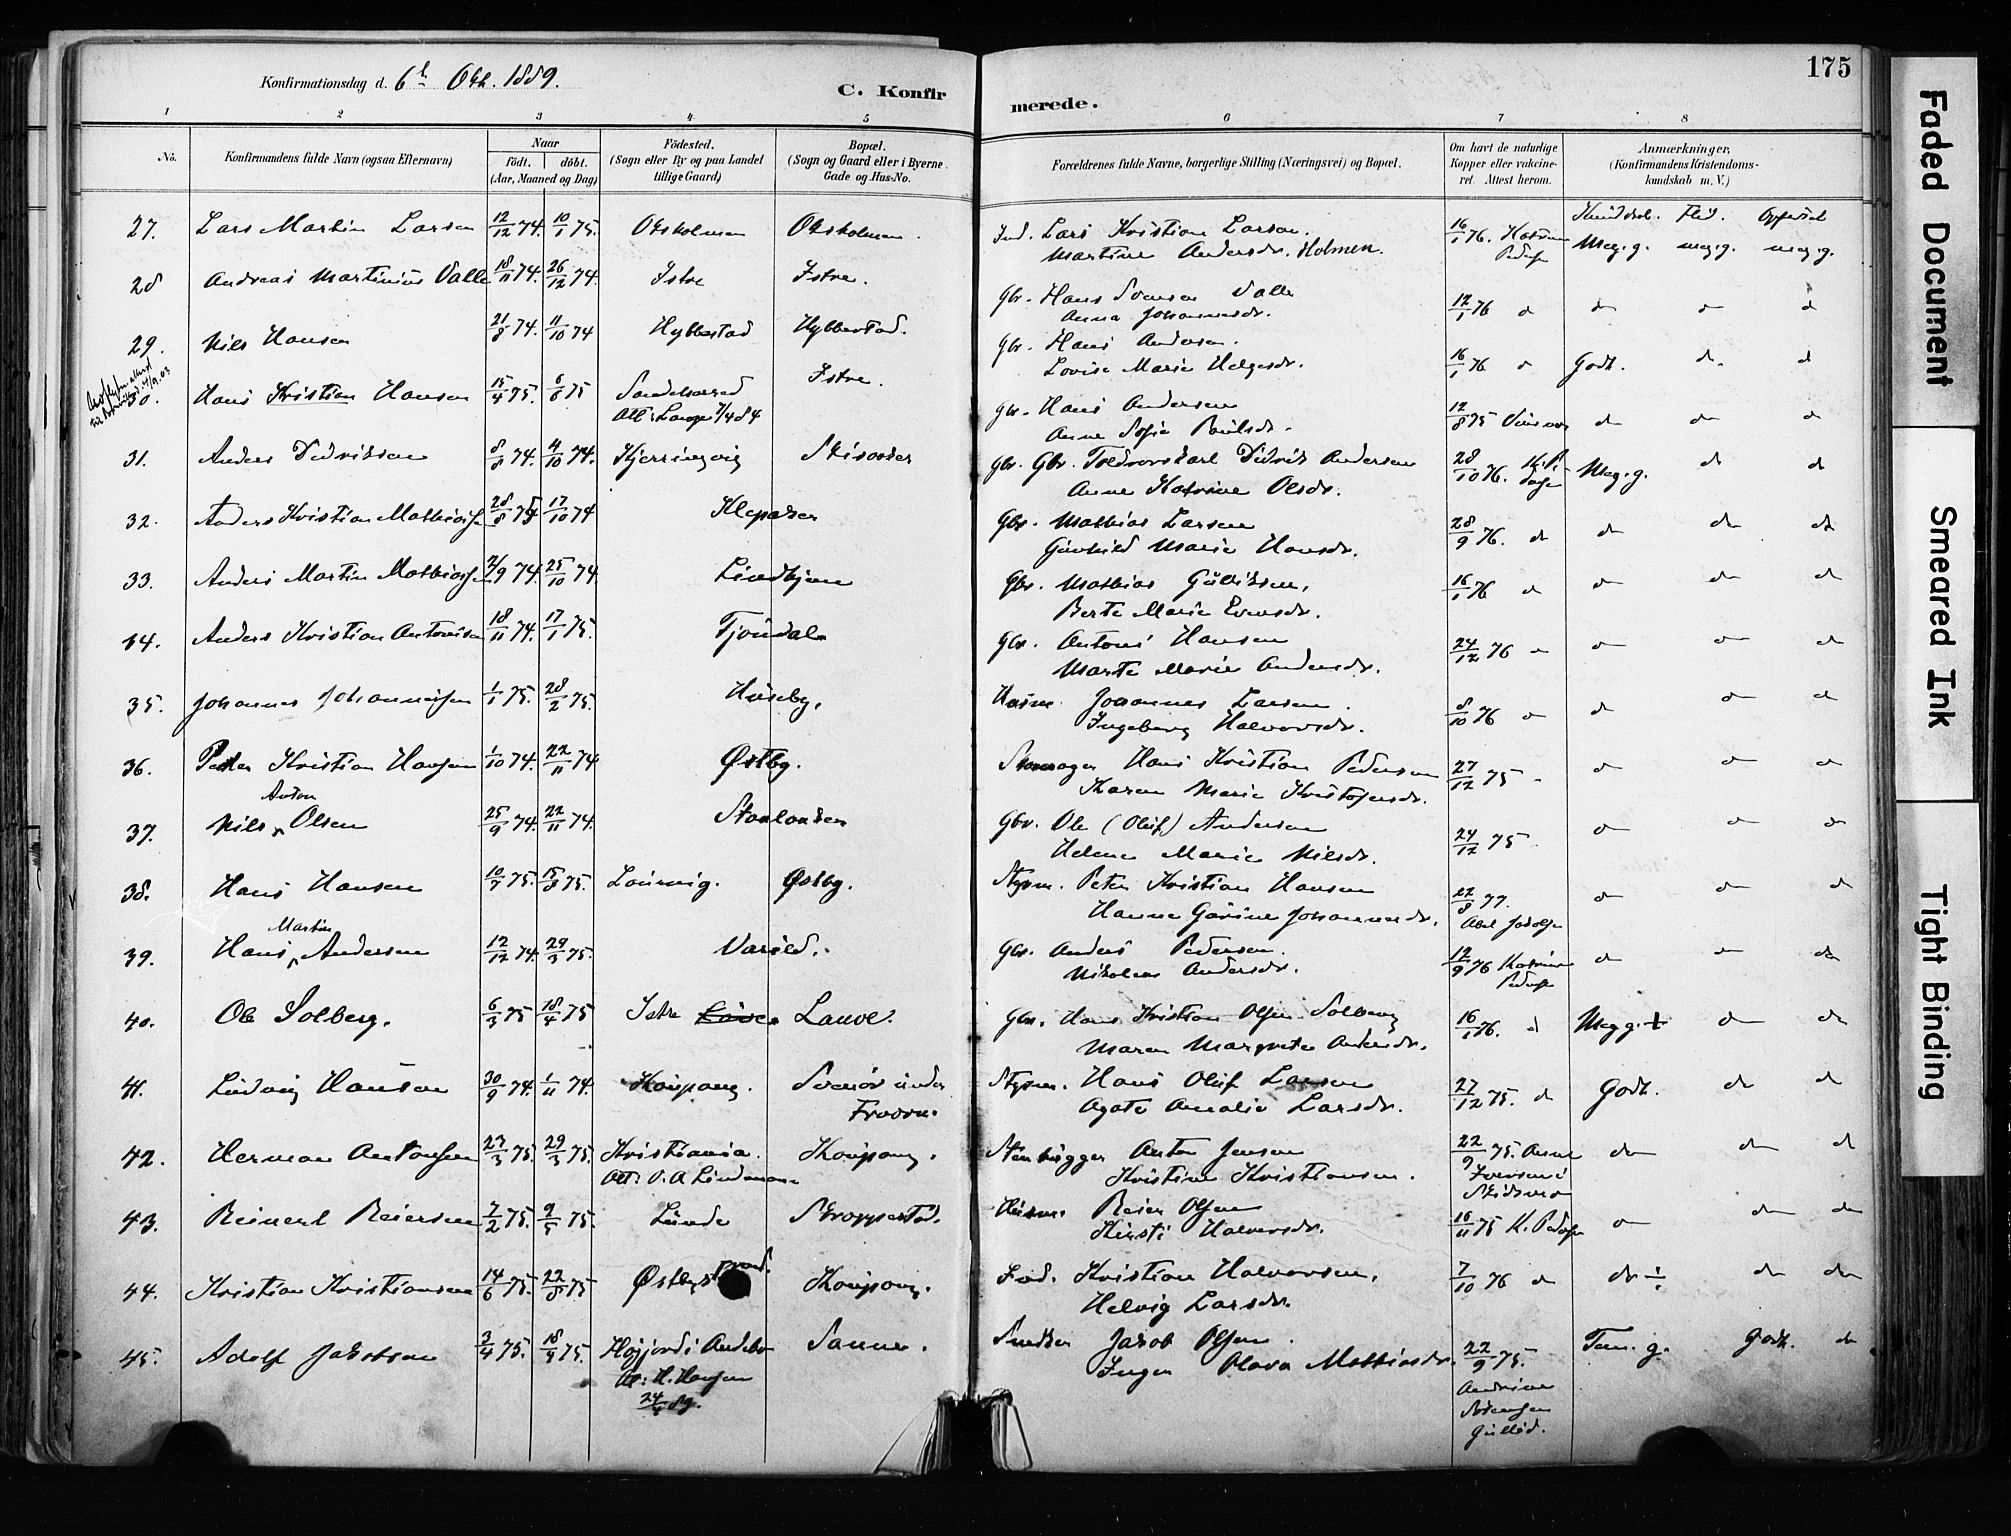 175
Konfirmationsdag d. 6te Okt. 1889.
C. Konfirmerede.
1 2 3 4 5 6 7 8
No.
Konfirmandens fulde Navn (ogsaa Efternavn)
Naar
födt. döbt.
(Aar, Maaned og Dag)
Födested.
(Sogn eller By og paa Landet
tillige Gaard)
Bopæl.
(Sogn og Gaard eller i Byerne
Gade og Hus-No.
Forældrenes fulde Navne, borgerlige Stilling (Næringsvei) og Bopæl.
Om havt de naturlige
Kopper eller vakcine-
ret. Attest herom.
Anmærkninger,
(Konfirmandens Kristendoms-
kundskab m. V.)
Kundskab. Flid. Opførsel
27. Lars Martin Larsen 12/12 74. 10/1 75. Oksholmen Oksholmen. Ind. Lars Kristian Larsen. 16/1 76. Meg. g. meg. g. meg g.
Martine Andersdr. Holmen.
28 Andreas Martinius Valle 18/11 74. 26/12 74. Istre Istre. Gbr. Hans Svensen Valle 12/1 76 d d d d
Anna Johannesdr.
29. Nils Hansen 21/8 74. 11/10 74 Hybbestad Hybbestad. Gbr. Hans Andersen. 16/1 76 d Godt. d d
Lovise Marie Helgesdr.
30. Hans Kristian Hansen 15/4 75. 6/6 75 Sandeherred Istre. Gbr. Hans Andersen 12/8 75 d d d
Anne Sofie Paulsdr.
31. Anders Didriksen 8/8 74. 4/10 74. Kjerringvig Skisaaker Gbr. Gbr. Toldrorskarl Didrik Andersen 28/10 76. Meg. g. d d
Anne Katrine Olsdr.
32. Anders Kristian Mathiasse 28/8 74 17/10 74 Klepaker Gbr. Mathias Larsen 28/9 76. d d d d
Gunhild Marie Hansdr.
33. Anders Martin Mathiasse 2/9 74 25/10 74 Lindhjem Gbr. Mathias Gulliksen. 16/1 76 d d d d
Berte Marie Evensdr.
34. Anders Kristian Antonisen 18/11 74. 17/1 75. Fjöndal Gbr. Antoni Hansen 24/12 76 d d d d
Marte Marie Andersdr.
35. Johannes Johannesen 1/1 75. 28/2 75. Huseby. Husm. Johannes Larsen. 8/10 76 d d d d
Ingeborg Halvorsdr.
36. Peder Kristian Hansen 1/10 74. 22/11 74 Østby. Skomager Hans Kristian Pedersen 27/12 75 d d d
Karen Marie Kristofersdr.
37. Nils Anton Olsen 25/9 74. 22/11 74. Gbr. Ole (Oluf) Andersen 24/12 75 d d d
Helene Marie Nilsdr.
38. Hans Hansen 10/7 75. 15/8 75. Laurvig. Østby. Styrm. Peter Kristian Hansen 22/8 77. d d d
Hanna Gurine Johannesdr.
39. Hans Martin Andersen 12/12 74. 29/3 75. Varild. Gbr. Anders Pedersen. 12/9 76 d d d
Nikoline Andersdr.
40. Ole Solberg. 6/3 75 18/4 75 Istre Lauve. Gbr. Hans Kristian Olsen Solberg 16/1 76. d Meg g. + d d
Maren Margrete Andersdr.
41. Ludvig Hansen 30/9 74. 1/11 74. Kaupang. Svenör under Styrm. Hans Oluf Larsen 27/12 75. d Godt. d d
Fredvn. Agate Amalie Larsdr.
42. Herman Antonsen 23/3 75. 29/3 75. Kristiania. Kaupang. Stenhugger Anton Jensen 22/9 75. d d d
Att: O. A. Lindeman Kristine Kristiansen.
43. Reinert Reiersen 7/2 75. 9/5 75. Lunde Skroppestad. Husm. Reier Olsen 16/11 75 K. d d d
Kirsti Halvorsdr.
44. Kristian Kristiansen 14/6 75. 22/8 75 Østbystrand. Kaupang. Ind. Kristian Halvorsen. 7/10 76 d d ÷ d d
Helvig Larsdr.
45. Adolf Jakobsen 3/4 75. 18/4 75. Høijord i Andebu Sanne. Snedker Jakob Olsen. 22/9 75. Tem. g. Godt. d
Att: H. Hansen Inger Olava Mathiasdr. Andrine
24/4 89. Sörensen
Gullid.
Faded Document
Smeared Ink
Tight Binding